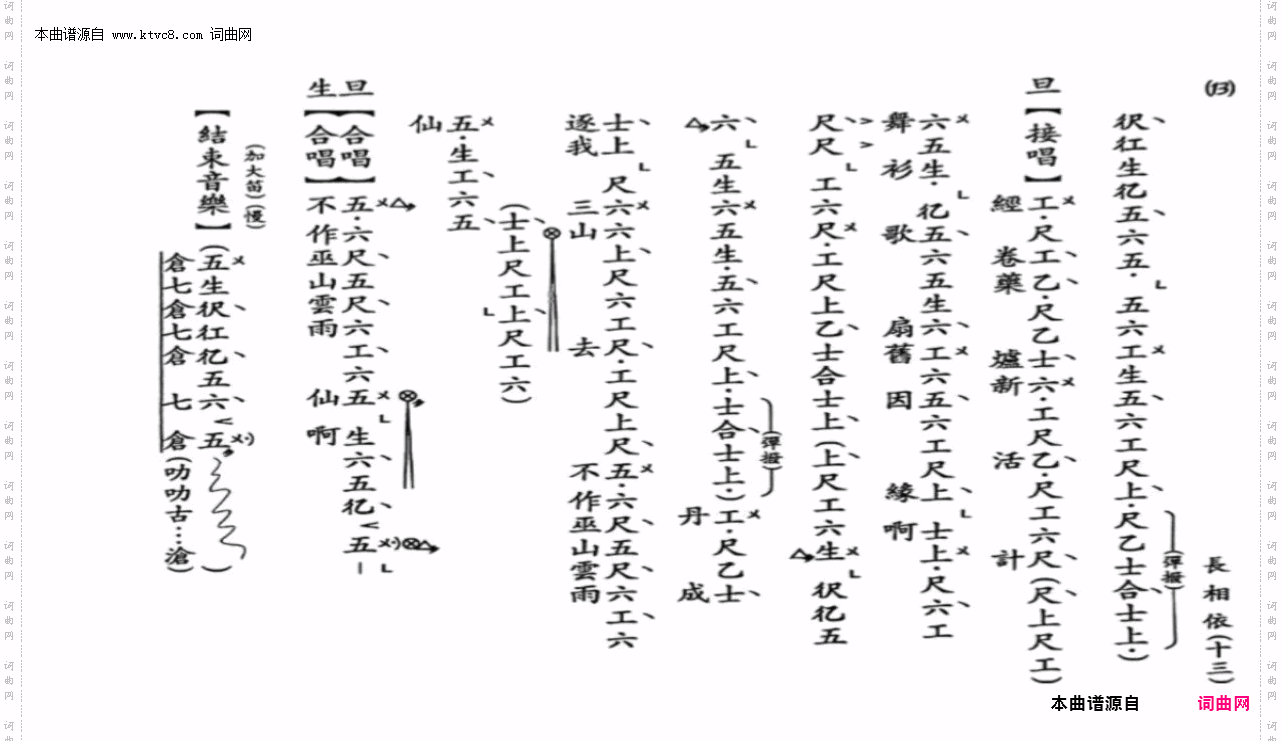 本曲谱源自 www.ktvc8.com 词曲网
(13)
長相依(十三)
(彈撥)
伬仜生亿五六五·五六工生五六工尺上·尺乙士合士上·)
旦【接唱】工·尺工乙·尺乙士六·工尺乙·尺工六尺(尺上尺工)
經卷藥爐新活計
六五生·亿五六五生六工六五六工尺上士上·尺六工
舞衫歌扇舊因緣啊
尺尺工六尺·工尺上乙士合士上(上尺工六生伬亿五
(彈撥)
六五生六五生·五六工尺上·士合士上·)工·尺乙士
丹成
士上尺六六上尺六工尺·工尺上尺五·六尺五尺六工六
逐我三山去不作巫山雲雨
(士上尺工上尺工六)
五·生工六五
仙
旦【合唱】五·六尺五尺六工六五生六五亿五
生【合唱】不作巫山雲雨仙啊
(加大笛)(慢)
【結束音樂】(五生伬仜亿五六五)
倉七倉七倉七倉(叻叻古…滄)
本曲谱源自 词曲网